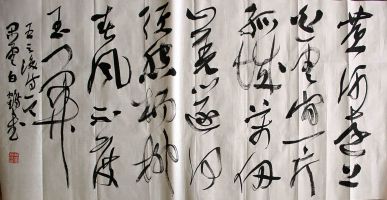 黄河远上
白云间一片
孤城万仞
山羌笛何
须怨杨柳
春风不度
玉门关
王之涣诗
云白鹤书